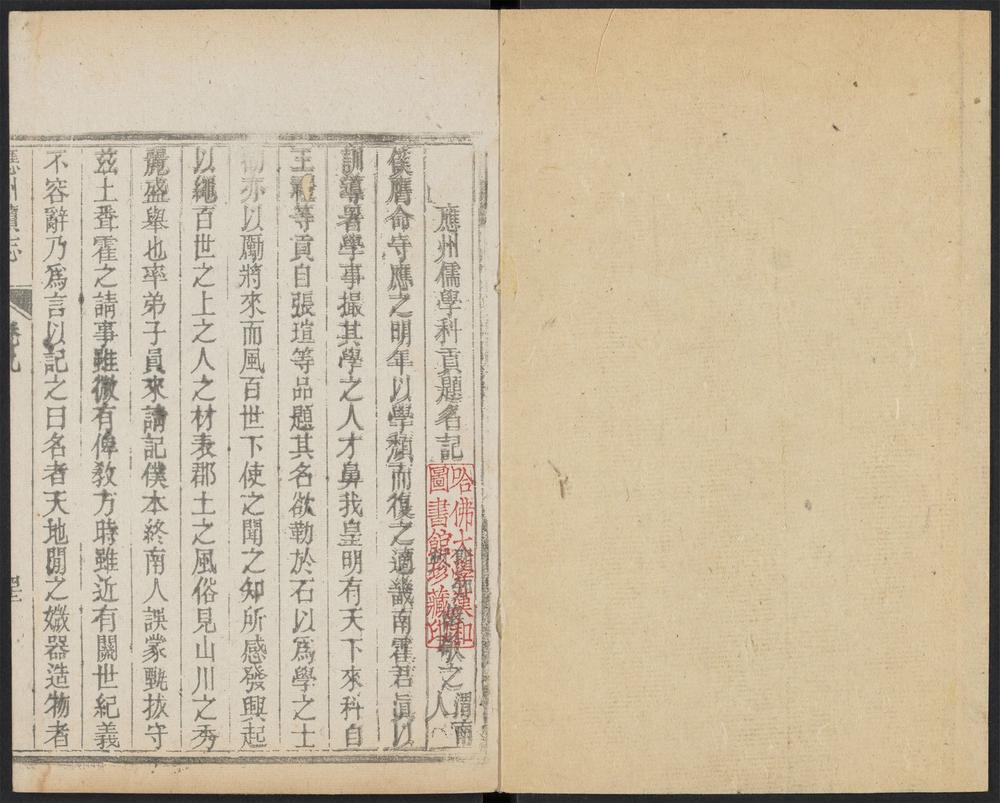 應州儒學科貢題名記
敬之 渭南人
僕膺命守應之明年以學頹而復之適畿南霍君滇以
訓導署學事撮其學之人才鼻我皇明有天下來科自
王等貢自張瑄等品題其名欲勒於石以爲學之士
勸亦以勵將來而風百世下使之聞之知所感發興起
以繩百世之上之人之材表郡土之風俗見山川之秀
麗盛舉也率弟子員來請記僕本終南人誤蒙甄拔守
茲土聋霍之請事雖微有俾敎方時雖近有關世紀義
不容辭乃爲言以記之曰名者天地閒之媺器造物者
應州續志 卷九
哈佛大學漢和
圖書館珍藏印